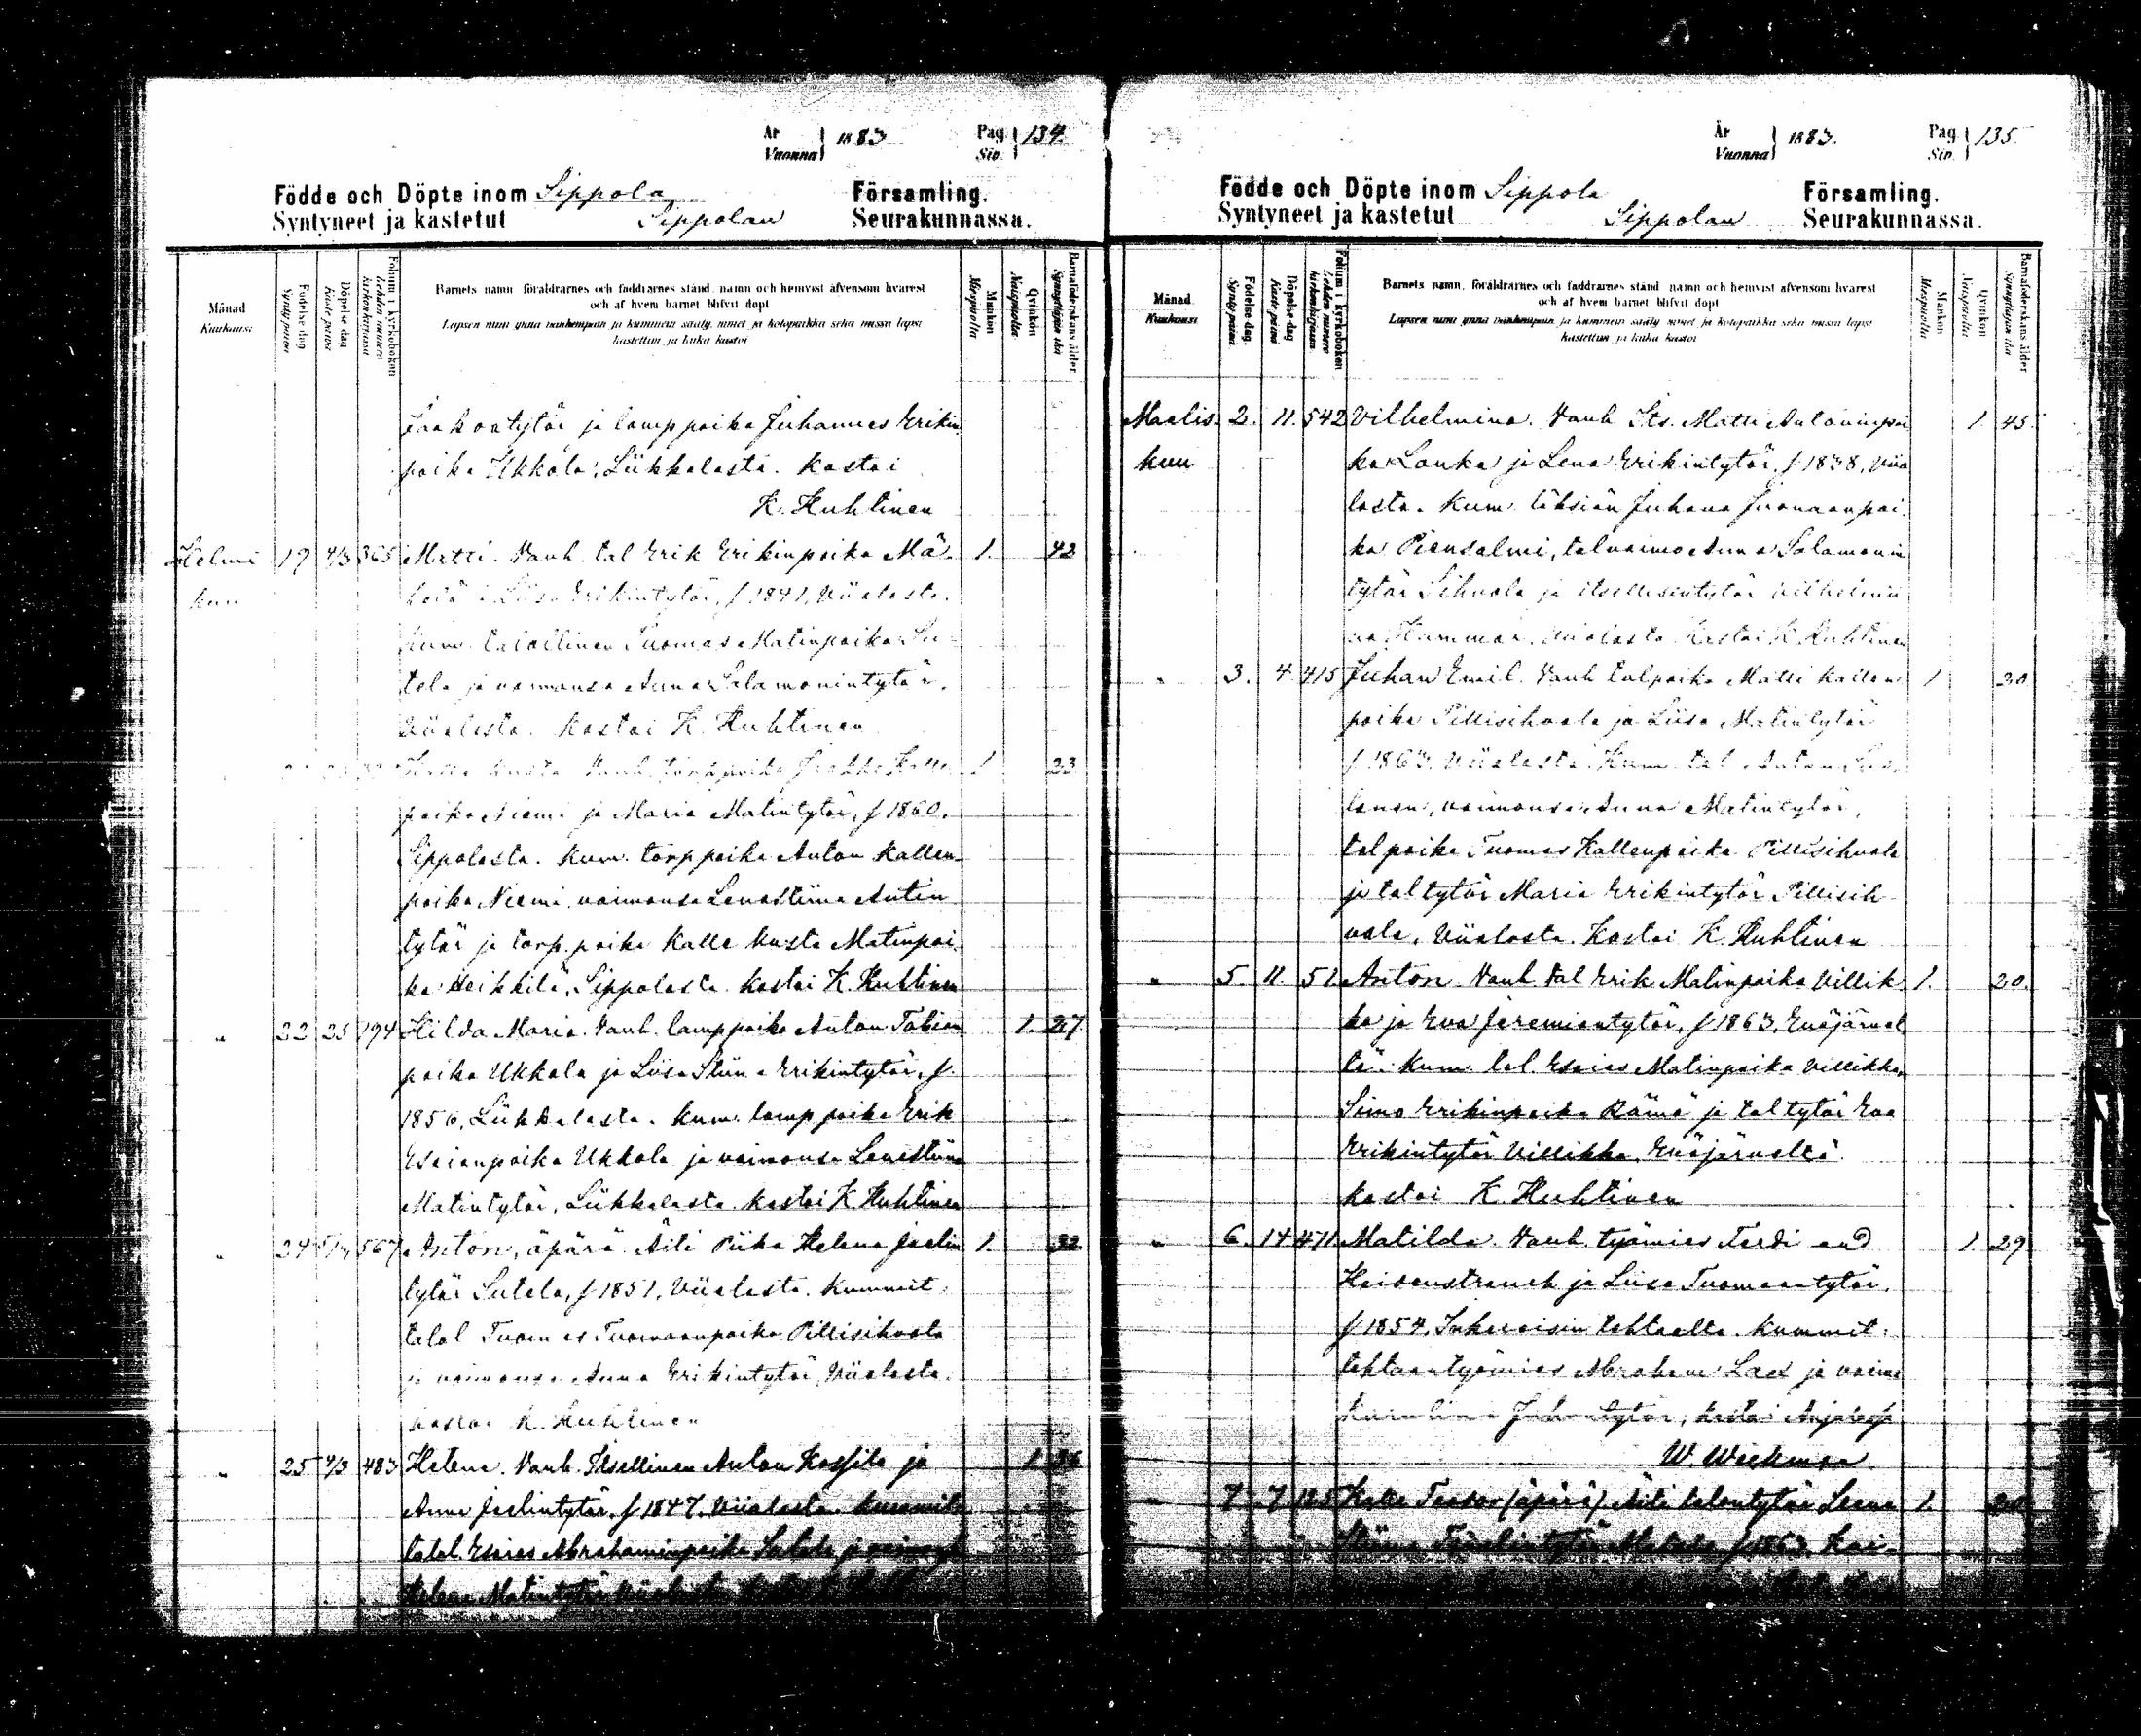 År
Vuonna } 1883
Pag.
Siv. } 134.
Födde och Döpte inom Sippola Församling.
Syntyneet ja kastetut Sippolan Seurakunnassa.
Månad
Kuukausi
Födelse dag
Synty päivä
Döpelse dag
Kaste päivä
Folium i kyrkoboken
Lehden numero kirkonkirjassa
Barnets namn, föräldrarnes och faddrarnes stånd, namn och hemvist äfvensom hvarest
och af hvem barnet blifvit döpt
Lapsen nimi ynnä vanhempain ja kummein sääty, nimet ja kotopaikka sekä missä lapsi
kastettiin ja kuka kastoi
Mankön
Miespuolta
Qvinkön
Naispuolta
Barnaföderskans ålder.
Synnyttäjän ikä
Jaakontytär ja lamppoika Juhannes Erikin
poika Ukkola, Liikkalasta. Kastoi
K. Huhtinen
Helmi 19 4/3 365 Matti. Vanh. tal Erik Erikinpoika Mä- 1. 42
kuu Liisa Erikintytär, f 1841, Viialasta.
Kum. talollinen Tuomas Matinpoika Su-
tela ja vaimonsa Anna Salamonintytär,
Viialasta. Kastoi K. Huhtinen
Vanh. torppoika Jaakko Kalle 1 23
poika Niemi ja Maria Matintytär, f 1860.
Sippolasta. Kum. torppoika Anton Kallen-
poika Niemi, vaimonsa Lenastiina Antin
tytär ja torp. poika Kalle Kusta Matinpoi-
ka Heikkilä, Sippolasta. Kastoi K. Huhtinen
" 22 25 194 Hilda Maria. Vanh. lamppoika Anton Tobian 1. 27.
poika Ukkola ja Liisa Stiina Erikintytär, f.
1856, Liikkalasta. Kum. lamppoika Erik
Esaianpoika Ukkola ja vaimonsa Lenastiina
Matintytär, Liikkalasta. Kastoi K. Huhtinen
" 24 567 Anton, äpärä. Äiti Piika Helena Joelin 1. 32.
tytär Sutela, f 1851, Viialasta. Kummit:
talol Tuomas Tuomaanpoika Pillisihvola
ja vaimonsa Anna Erikintytär, Viialasta.
kastoi K. Huhtinen
" 25 4/3 483 Helena. Vanh. Itsellinen Anton Kossila ja 1 36
Anna Joelintytär, f 1847, Viialasta. Kummit:
talol. Esaias Abrahaminpoika Sutela ja vaimonsa
Helena Matintytär Viialasta
År
Vuonna } 1883.
Pag
Siv. } 135
Födde och Döpte inom Sippola Församling.
Syntyneet ja kastetut Sippolan Seurakunnassa.
Månad
Kuukausi
Födelse dag.
Synty päivä
Döpelse dag
Kaste päivä
Folium i kyrkoboken
Lehden numero kirkonkirjassa
Barnets namn, föräldrarnes och faddrarnes stånd, namn och hemvist äfvensom hvarest
och af hvem barnet blifvit döpt
Lapsen nimi ynnä vanhempain ja kummein sääty, nimet ja kotopaikka sekä missä lapsi
kastettiin ja kuka kastoi
Mankön
Miespuolta
Qvinkön
Naispuolta
Barnaföderskans ålder
Synnyttäjän ikä
Maalis. 2. 11. 542 Vilhelmina. Vanh. Its. Matti Antoninpoi 1 45.
kuu ka Lonka ja Lena Erikintytär, f 1838, Viia
lasta. Kum. läksiän Juhana Juonaanpoi-
ka Piensalmi, tal vaimo Anna Salamonin
tytär Sihvola ja itsellisentytär Vilhelmii
na Hammar, Viialasta Kastoi K. Huhtinen
" 3. 4. 415 Juhan Emil. Vanh. talpoika Matti Kallen 1 20
poika Pillisihvola ja Liisa Matintytär
f 1863. Viialasta. Kum. tal. Anton
vaimonsa Anna Matintytär,
talpoika Tuomas Kallenpoika Pillisihvola
ja tal tytär Maria Erikintytär Pillisih-
vola, Viialasta. Kastoi K. Huhtinen
" 5. 11. 51 Anton. Vanh. tal Erik Matinpoika Villik 1. 20.
ka ja Eva Jeremiantytär, f 1863, Enäjärvel
tä. Kum. tal. Esaias Matinpoika Villikka,
Simo Erikinpoika Rämä ja tal tytär Eva
Erikintytär Villikka, Enäjärveltä.
kastoi K. Huhtinen
" 6. 14 471 Matilda. Vanh. työmies Ferdinand 1. 29
ja Liisa Tuomaantytär,
f 1854, Inkeroisin tehtaalta. Kummit:
tehtaantyömies Abraham Lax ja vaim
kastoi
W. Weckman
" 7 7 Kalle Teodor (äpärä) Äiti talontytär Leena 1. 20
Stiina Matala f 1863 Kai-